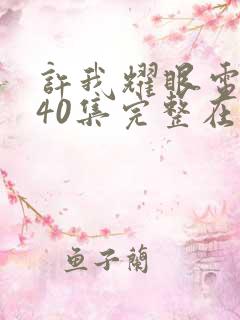 許我耀眼電
40集完整在
魚子蘭